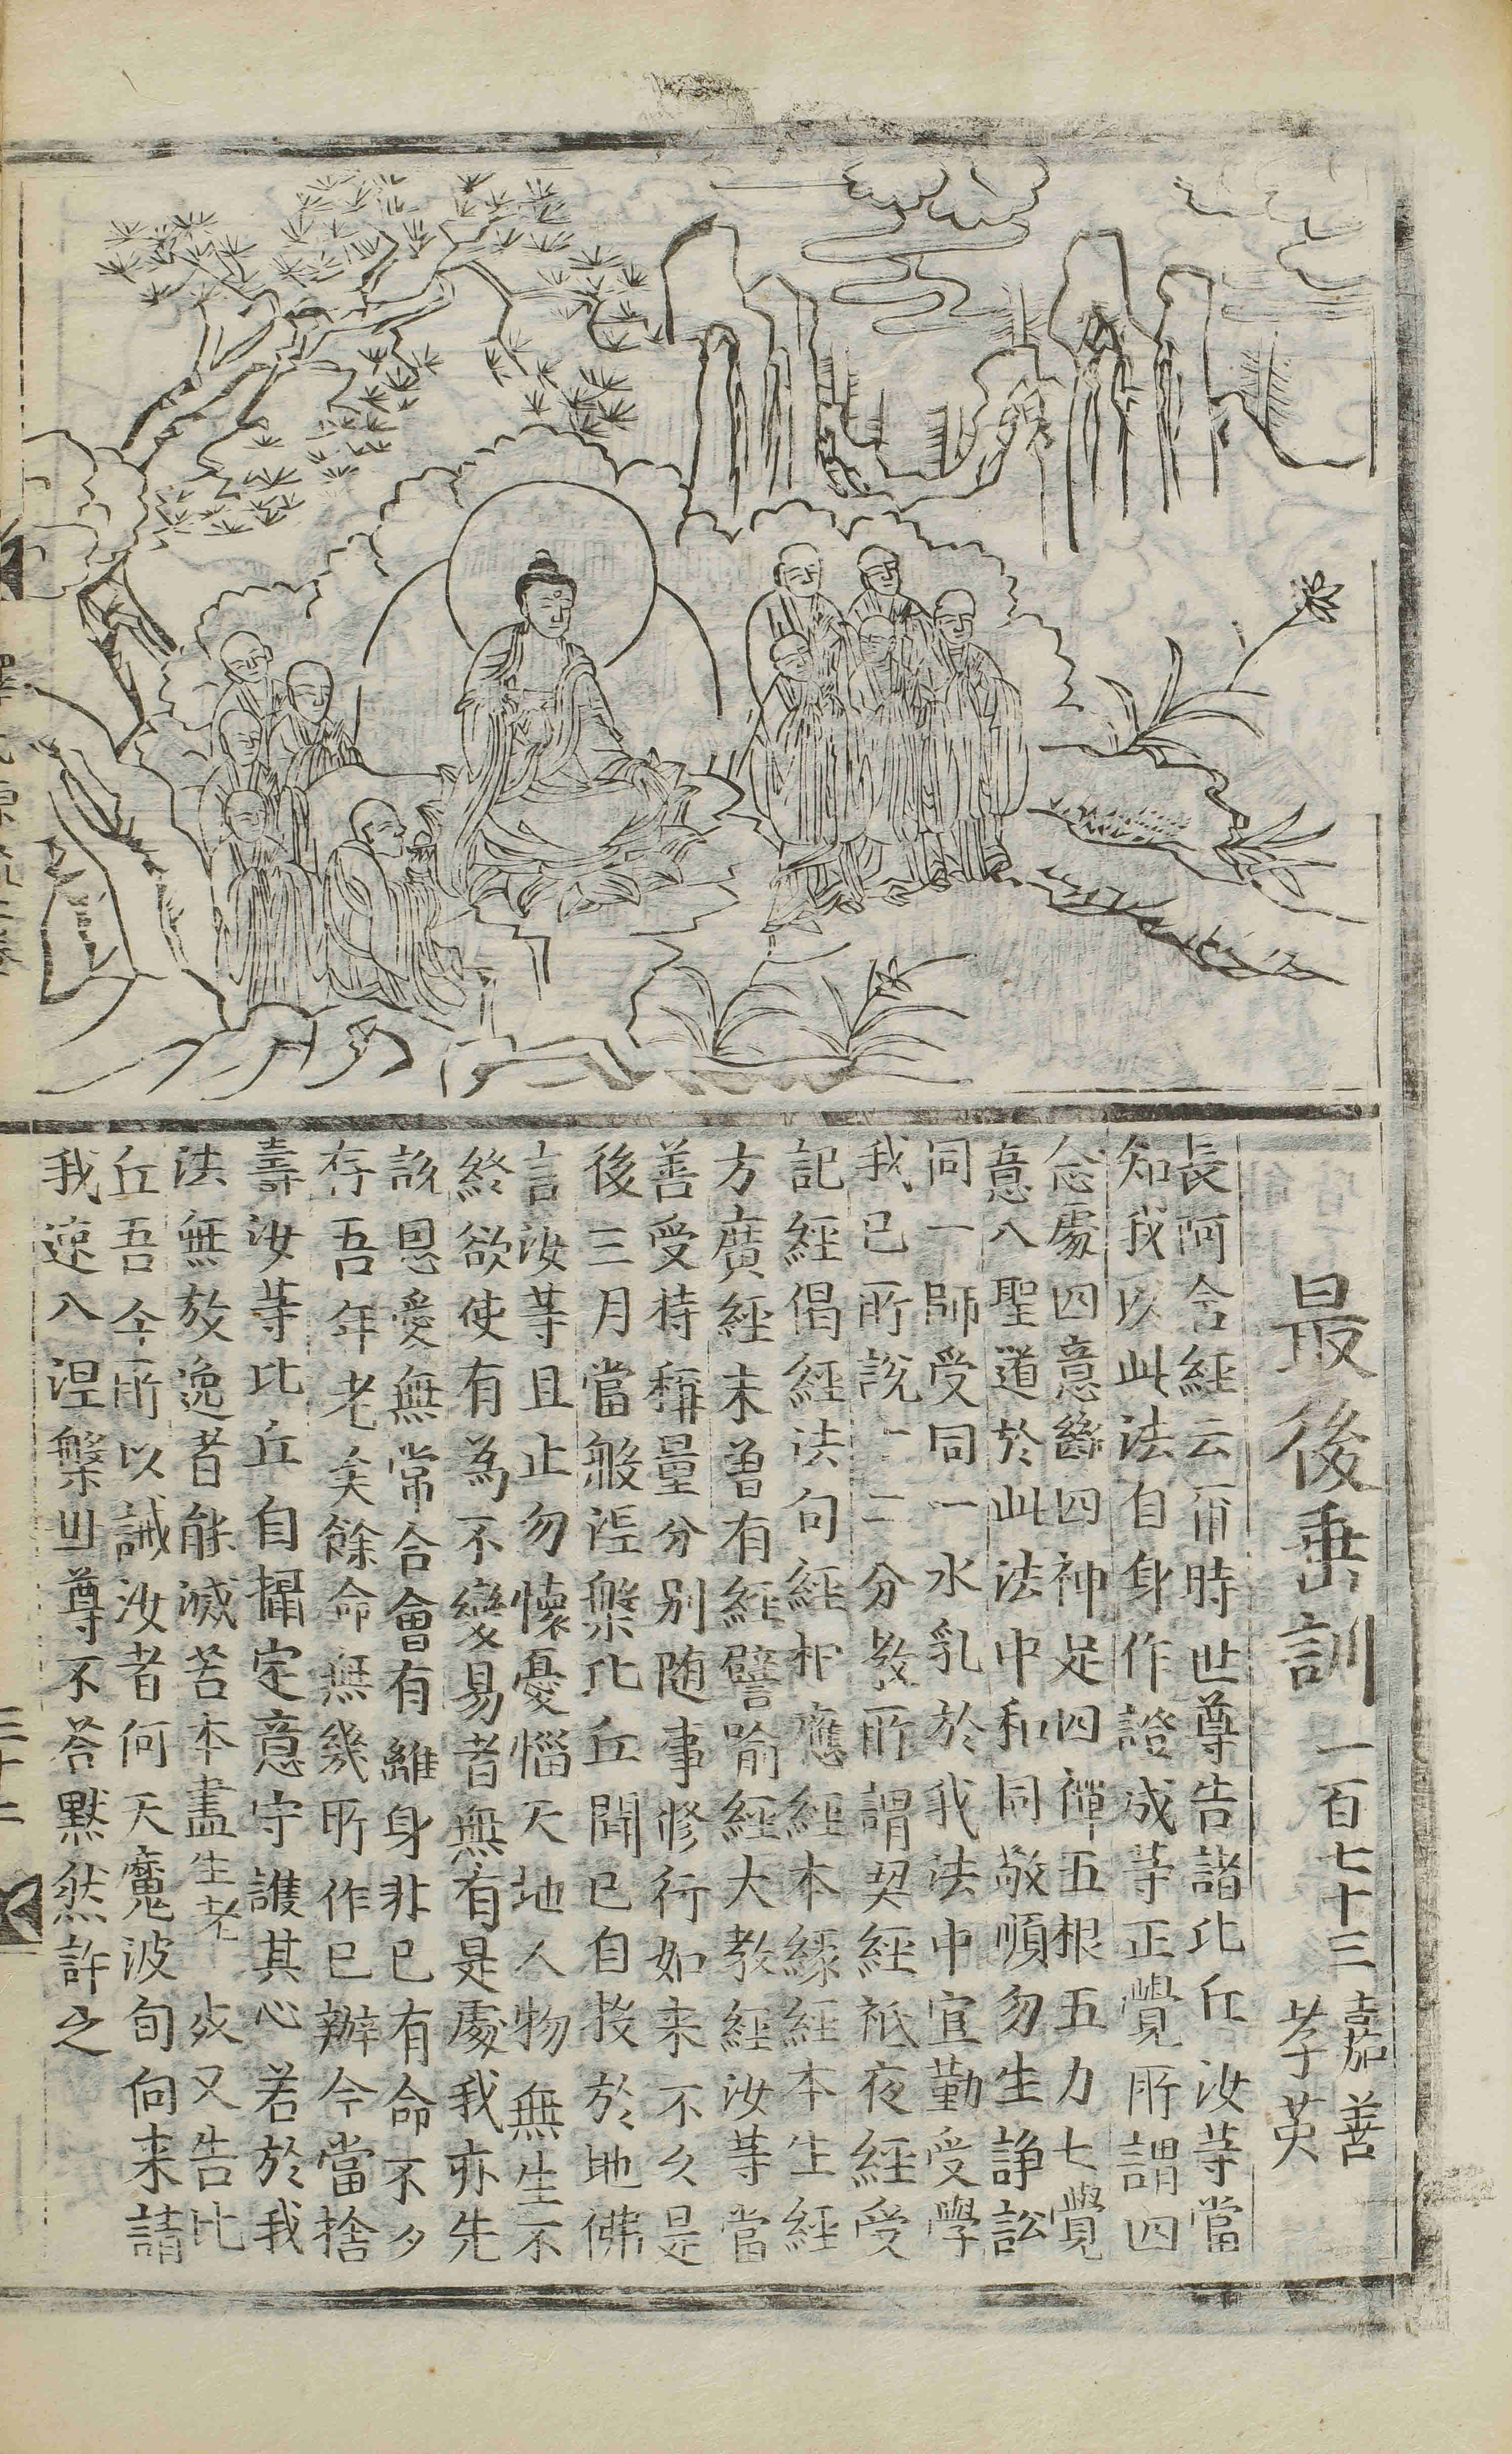 最後垂訓 一百七十三 嘉善 孝英
長阿含經云爾時世尊告諸比丘汝等當
知我以此法自身作證成等正覺所謂四
念處四意斷四神足四禪五根五力七覺
意八聖道於此法中和同敬順勿生諍訟
同一師受同一水乳於我法中宜勤受學
我已所說十二分教所謂契經祗夜經受
記經偈經法句經相應經本緣經本生經
方廣經未曾有經譬喻經大教經汝等當
善受持稱量分別随事修行如来不久是
後三月當般涅槃比丘聞已自投於地佛
言汝等且止勿懷憂惱天地人物無生不
終欲使有為不變易者無有是處我亦先
說恩愛無常合會有離身非已有命不夕
存吾年老矣餘命無幾所作已辦今當捨
壽汝等比丘自攝定意守護其心若於我
法無放逸者能滅苦本盡生老 又告比
丘吾今所以誡汝者何天魔波旬向来請
我速入涅槃世尊不荅默然許之
三十二